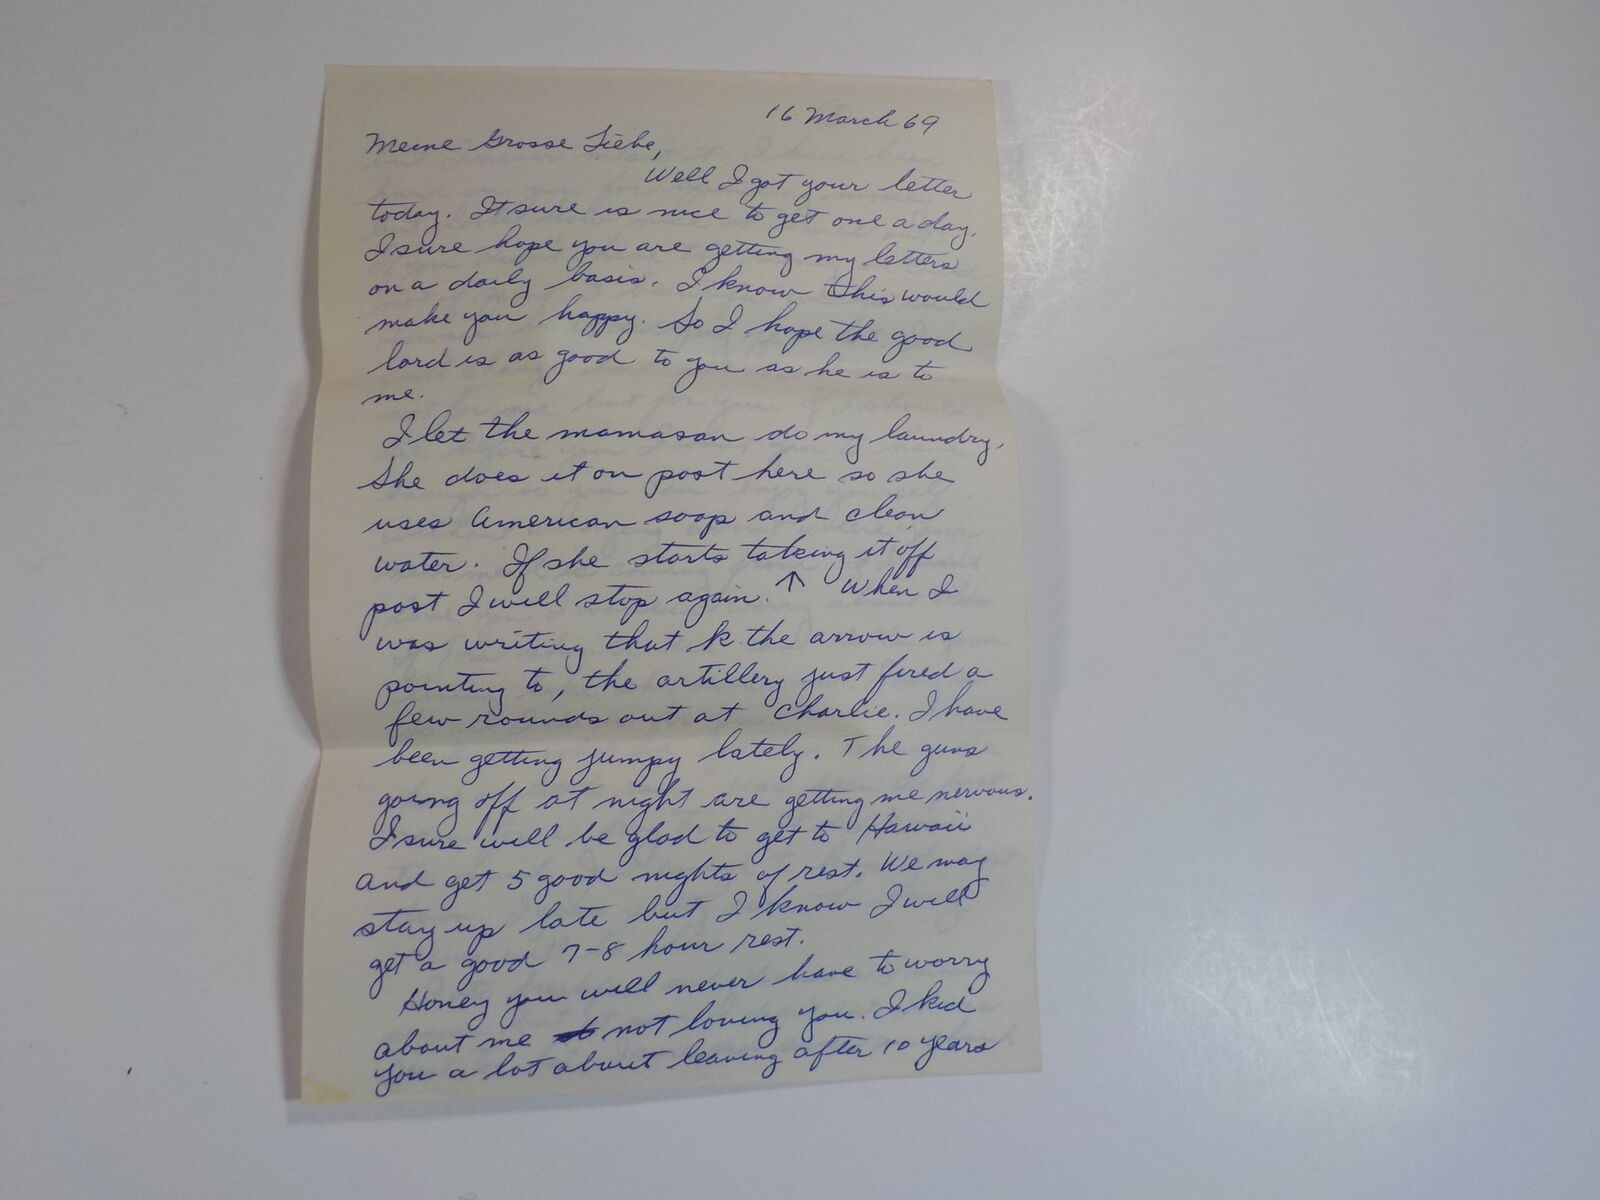 16 March 69
Meine Grosse Liebe,
Well I got your letter
today. It sure is nice to get one a day.
I sure hope you are getting my letters
on a daily basis. I know this would
make you happy. So I hope the good
lord is as good to you as he is to
me.
I let the mamasan do my laundry.
She does it on post here so she
uses American soap and clean
water. If she starts taking it off
post I will stop again. ↑ When I
was writing that k the arrow is
pointing to, the artillery just fired a
few rounds out at Charlie. I have
been getting jumpy lately. The guns
going off at night are getting me nervous.
I sure will be glad to get to Hawaii
and get 5 good nights of rest. We may
stay up late but I know I will
get a good 7-8 hour rest.
Honey you will never have to worry
about me not loving you. I kid
you a lot about leaving after 10 years